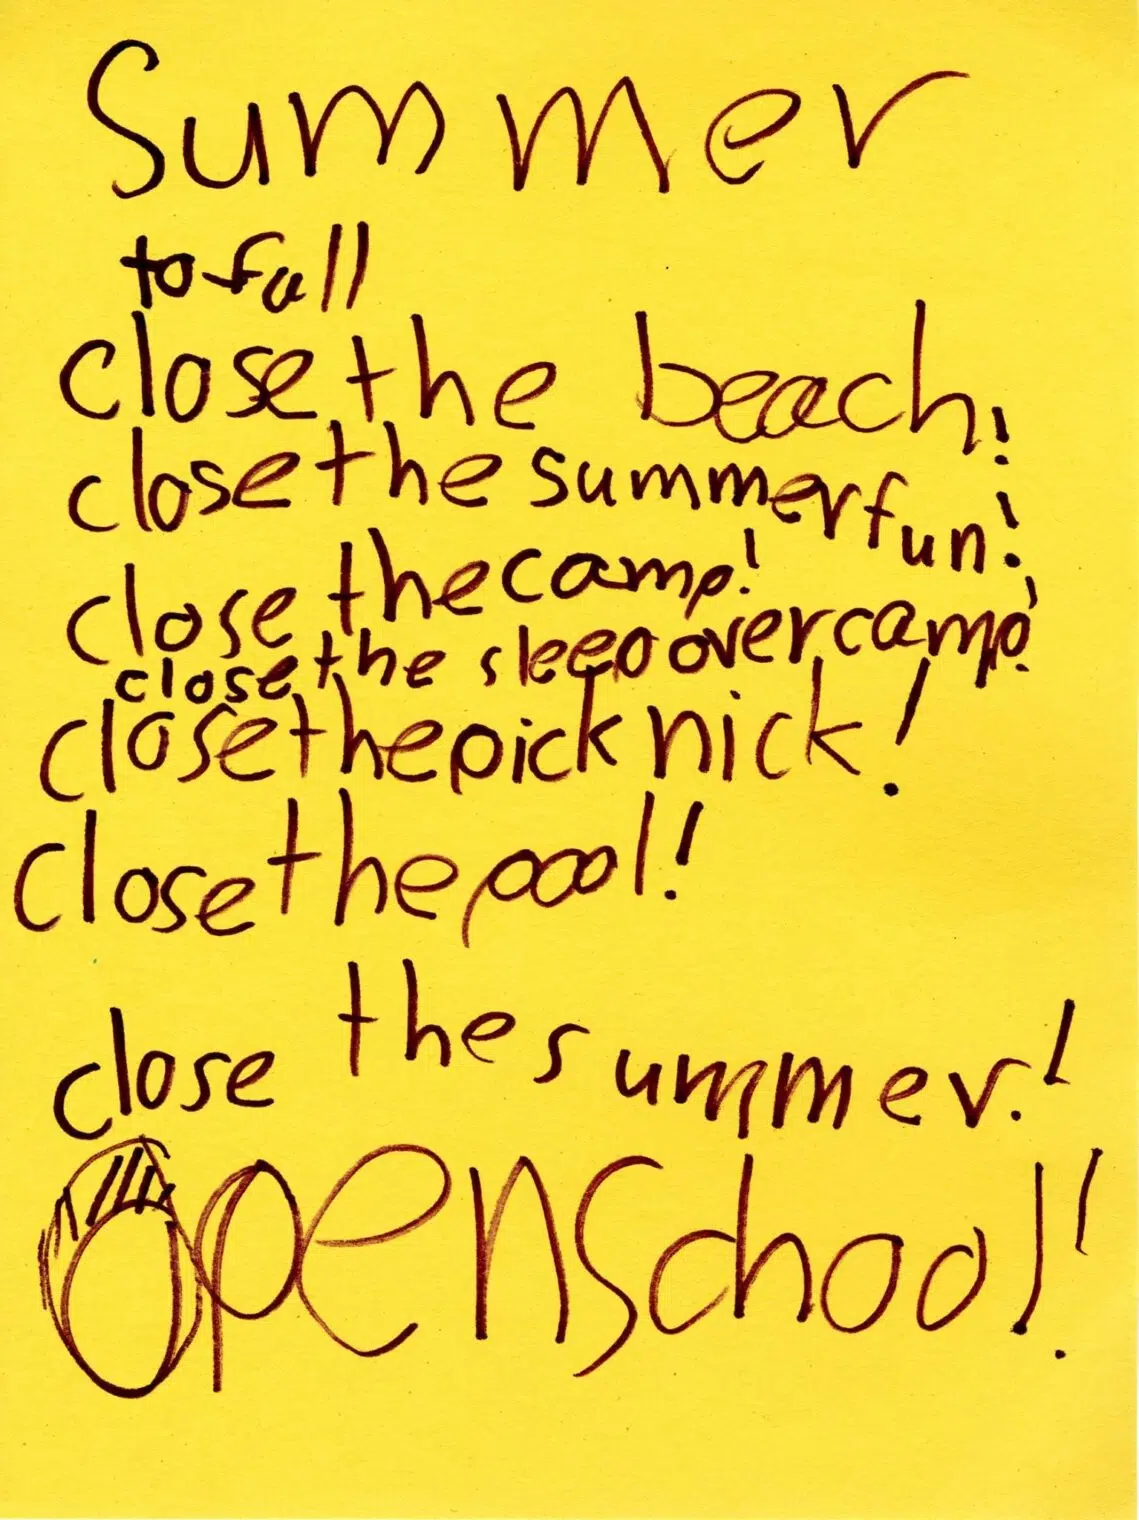 Summer
to fall
close the beach!
close the summer fun!
close the camp!
close the sleep over camp!
close the pick nick!
close the pool!
close the summer.!
Open school!!